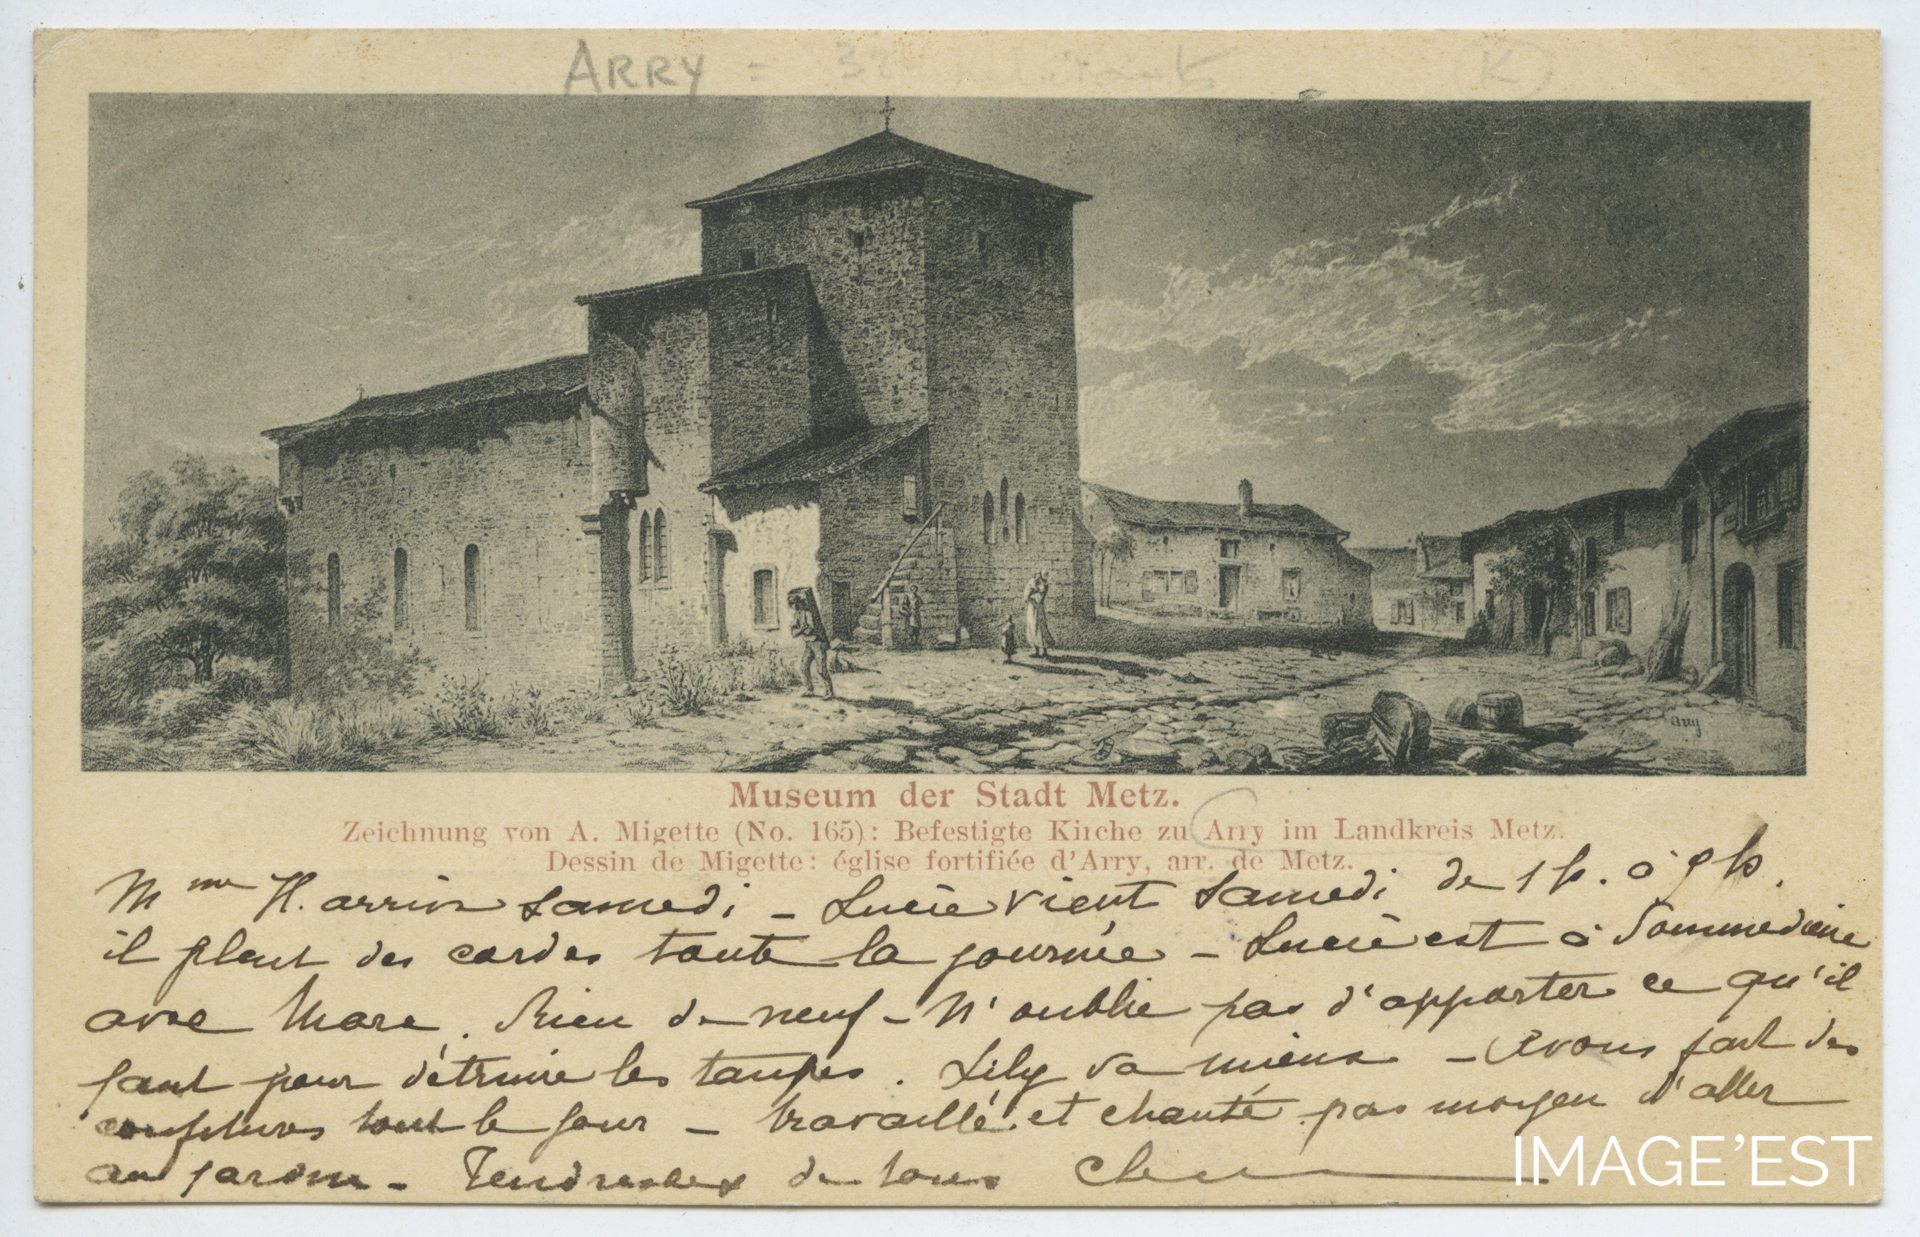 ARRY =
arry
Museum der Stadt Metz.
Zeichnung von A. Migette (No. 165): Befestigte Kirche zu Arry im Landkreis Metz.
Dessin de Migette: église fortifiée d'Arry, arr. de Metz.
Mme H. arrive Samedi - Lucie vient Samedi de 1 h. à 9 h.
il pleut des cordes toute la journée - Lucie est à Sommedieue
avec Marc. Rien de neuf - N'oublie pas d'apporter ce qu'il
faut pour détruire les taupes. Lily va mieux - Avons fait des
confitures tout le jour - travaillé et chanté pas moyen d'aller
au jardin - Tendresses de tous
IMAGE'EST